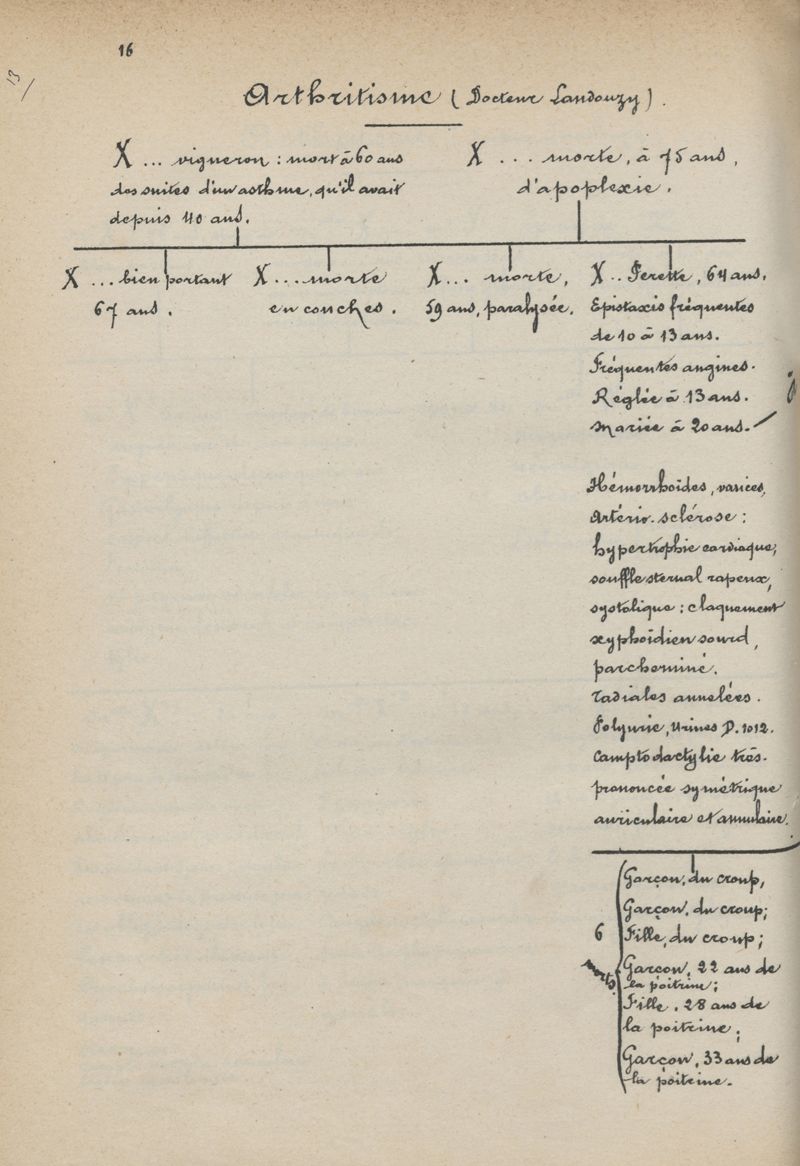 16
13
Arthritisme (Docteur Landouzy).
X ... vigneron : mort à 60 ans
des suites d'un asthme, qu'il avait
depuis 40 ans.
X ... morte, à 75 ans,
d'apoplexie.
X ... bien portant
67 ans.
X ... morte
en couches.
X ... morte,
59 ans, paralysée.
X .. Perette, 64 ans.
Epistaxis fréquentes
de 10 à 13 ans.
Fréquentes angines.
Réglée à 13 ans.
Mariée à 20 ans.
Hémorrhoïdes, varices,
Artério-sclérose :
hypertrophie cardiaque;
souffle sternal rapeux,
systolique : claquement
xyphoïdien sourd,
parcheminé.
Radiales annelées.
Polyurie, Urines D. 1012.
Camptodactylie très-
prononcée symétrique
auriculaire et annulaire.
6
morts
Garçon, du croup,
Garçon, du croup;
Fille, du croup;
Garçon, 22 ans de
la poitrine;
Fille, 28 ans de
la poitrine;
Garçon, 33 ans de
la poitrine.